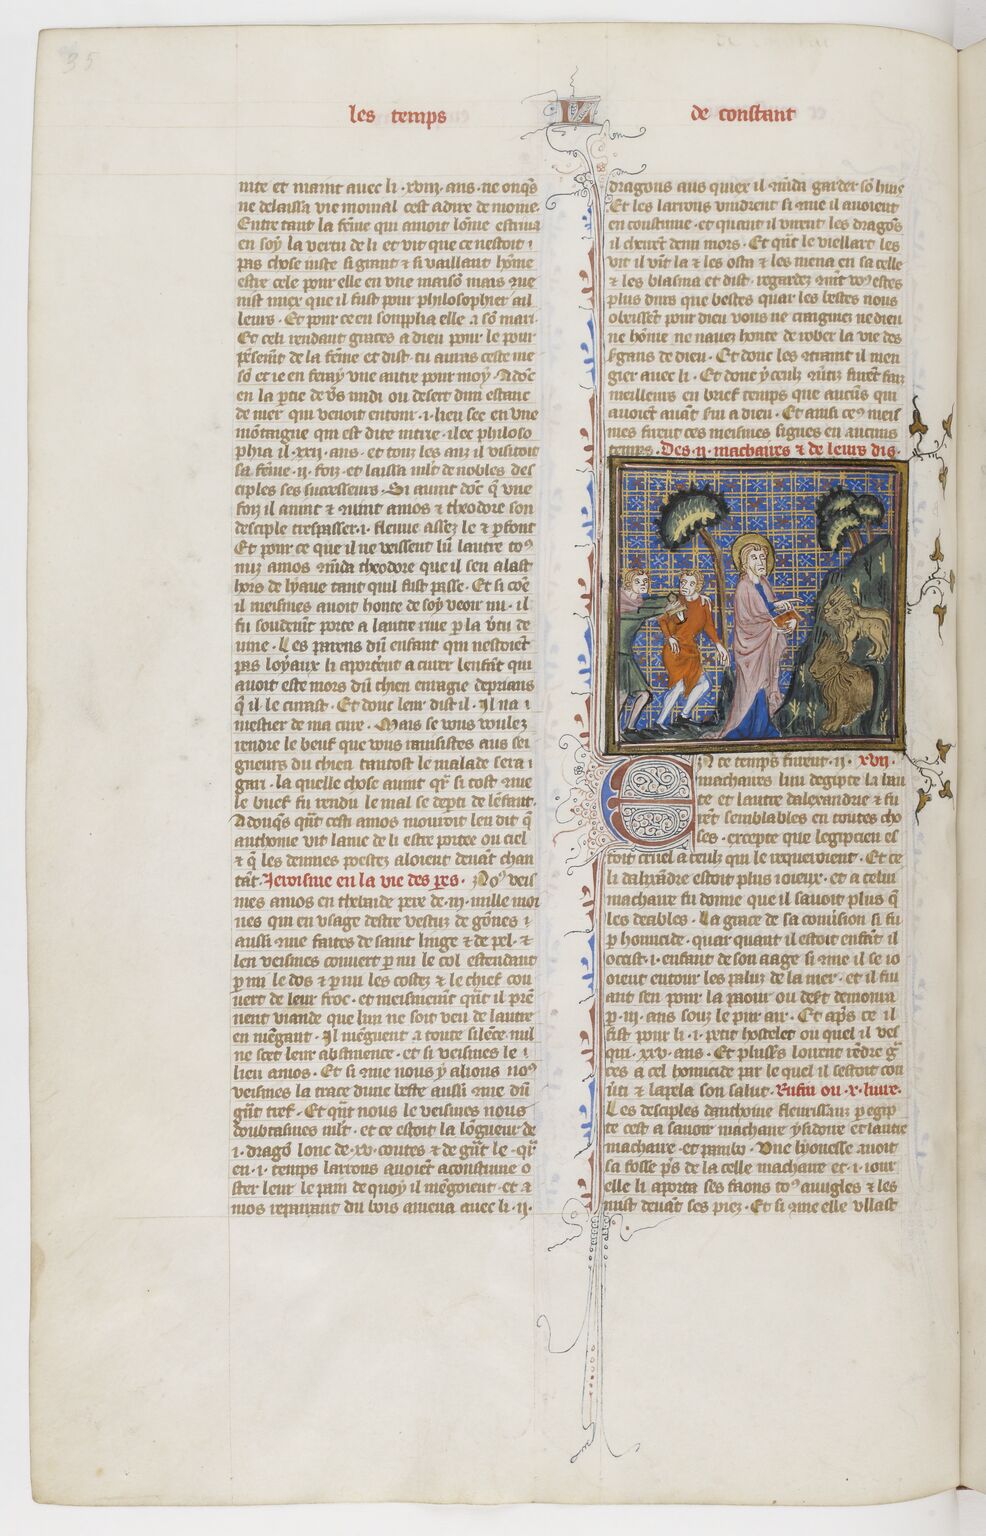 35
les temps
de constant
nite et maint avec li .xviij. ans. ne onq̄s
ne delaissa vie moinal cest adire de moine.
Entre tant la fēme qui amoit lōme estima
en soy la vertu de li et vit que ce nestoit
pas chose iuste si grant ⁊ si vaillant hōme
estre cele pour elle en une maisō mais que
mist miex que il fust pour philosophier ail
leurs. Et pour ce en supplia elle a sō mari.
Et celi rendant graces a dieu pour le pour
pēsemēt de la fēme et dist. tu auras ceste me
sō et ie en feray une autre pour moy. Adōc
en la ptie de vs midi ou desert dun estanc
de mer qui venoit entour .i. lieu sec en une
mōtaigne qui est dite nitrie. ilec philoso
phia il .xxij. ans. et touz les anz il visitoit
sa fēme .ij. foiz. et laissa mlt de nobles des
ciples ses successeurs. Si avint dōc q̄ une
foiz il avint ⁊ amos ⁊ theodore son
desciple trespasser .i. fleuve assez le ⁊ pfont
Et pour ce que il ne veissent lun lautre to⁹
nuz amos māda theodore que il sen alast
hors de lyaue tant quil fust passe. Et si cōe
il meismes avoit honte de soy veoir nu. il
fu soudenēt porte a lautre rive p la vtu de
vine. Les parens dun enfant qui nestoiēt
pas loyaux li aportent a curer lenfāt qui
avoit este mors dun chien enragie deprians
q̄ il le curast. Et donc leur dist il. Il na
mestier de ma cure. Mais se vous voulez
rendre le beuf que vous ravisistes aus sei
gneurs du chien tantost le malade sera
gari. la quelle chose avint qr si tost que
le buef fu rendu le mal se depti de lēfant.
Adonq̄s qūt cesti amos mouroit len dit q̄
anthoine vit lame de li estre portee ou ciel
⁊ q̄ les dennnes poestez aloient devāt chan
tāt. Jeroisme en la vie des pes. No⁹ veis
mes amos en thebaide pere de .iij. mille moi
nes qui en usage destre vestuz de gōnes
aussi que faites de saint linge ⁊ de pel. ⁊
len veismes couvert p mi le col estendant
p mi le dos ⁊ p mi les costez ⁊ le chief cou
vert de leur froc. et meismemt qūt il prē
nent viande que lun ne soit veu de lautre
en mēgant. Il mēguent a toute silēce. nul
ne scet leur abstinence. et si veismes le
lieu amos. Et si que nous y alions no⁹
veismes la trace dune beste aussi que dun
grāt tref. Et qūt nous le veismes nous
doubtasmes mlt. et ce estoit la lōgueur de
.i. dragō lonc de .xv. coutes ⁊ de grāt le. qr
en .i. temps larrons avoiēt acoustume o
ster leur le pain de quoy il mēgoient. et a
mos repairant du bois amena avec li .ij.
dragons aus quiex il māda garder sō huis
Et les larrons vindrent si que il avoient
en coustume. et quant il virent les dragōs
il cheurēt demi mors. Et qūt le viellart les
vit il vīt la ⁊ les osta ⁊ les mena en sa celle
⁊ les blasma et dist. regardez vo⁹ estes
plus durs que bestes quar les bestes nous
obeissēt pour dieu vous ne craignez ne dieu
ne hōme ne navez honte de rober la vie des
sgans de dieu. Et donc les retint il men
gier avec li. Et donc yceulz furēt faiz
meilleurs en brief temps que aucūs qui
avoiēt avāt servi a dieu. Et ainsi ce⁹ meis
mes firent ces meismes signes en aucuns
temps. Des .ij. machaires ⁊ de leurs dis.
En ce temps furent .ij. xvij.
machaires lun degipte la hau
te et lautre dalexandrie ⁊ fu
rēt semblables en toutes cho
ses. excepte que legipcien es
toit cruel a ceulz qui le requeroient. Et ce
li dalixādre estoit plus ioieux. et a celui
machaire fu donne que il savoit plus q̄
les deables. La grace de sa cōmision si fu
p homicide. quar quant il estoit enfāt il
occist .i. enfant de son aage si que il se io
oient entour les paluz de la mer. et il fui
ant sen pour la paour ou desert demoura
p .iij. ans souz le pur air. Et aps ce il
fist pour li .i. petit hostelet ou quel il ves
qui .xxv. ans. Et plusrs loirent rēdre gr̄
ces a cel homicide par le quel il sestoit con
vti ⁊ lapela son salut. Rufin ou .x. livre.
Les desciples danthoine fleurissāz p egip
te cest a savoir machaire ysidoire et lautre
machaire et pambo. Une lyonesse avoit
sa fosse ps de la celle machaire et .i. iour
elle li aporta ses faons to⁹ avugles ⁊ les
mist devāt ses piez. Et si que elle ullast